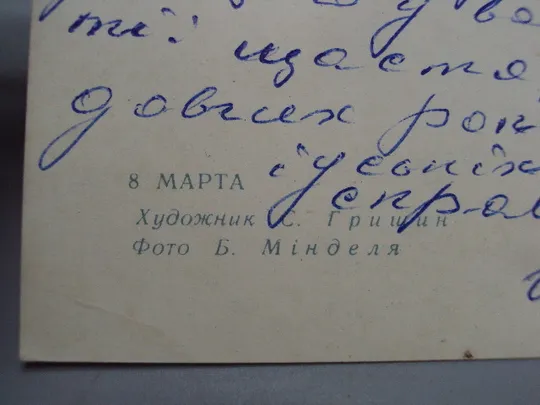 ті: щастя,
довгих рок
і успіх
8 МАРТА
Художник С. Гришин
Фото Б. Мінделя